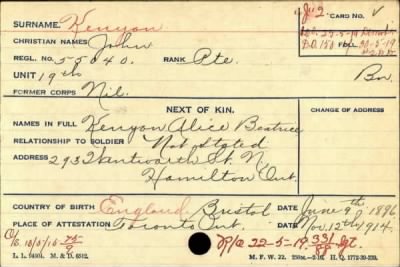 SURNAME. Kenyon
CARD NO.
CHRISTIAN NAMES John
REGL. NO. 55040. RANK Pte.
FOLL.
UNIT 19th Bn.
FORMER CORPS Nil.
NEXT OF KIN.
CHANGE OF ADDRESS
NAMES IN FULL Kenyon Alice Beatrice
RELATIONSHIP TO SOLDIER Not Stated
ADDRESS 293 Wentworth St. N.
Hamilton Ont.
COUNTRY OF BIRTH England Bristol DATE June 9th 1896
PLACE OF ATTESTATION Toronto Ont. DATE Nov. 12th 1914.
22-5-19
L. L. 94001. M. & D. 6512.
M. F. W. 22.
H. Q. 1772-39-339.